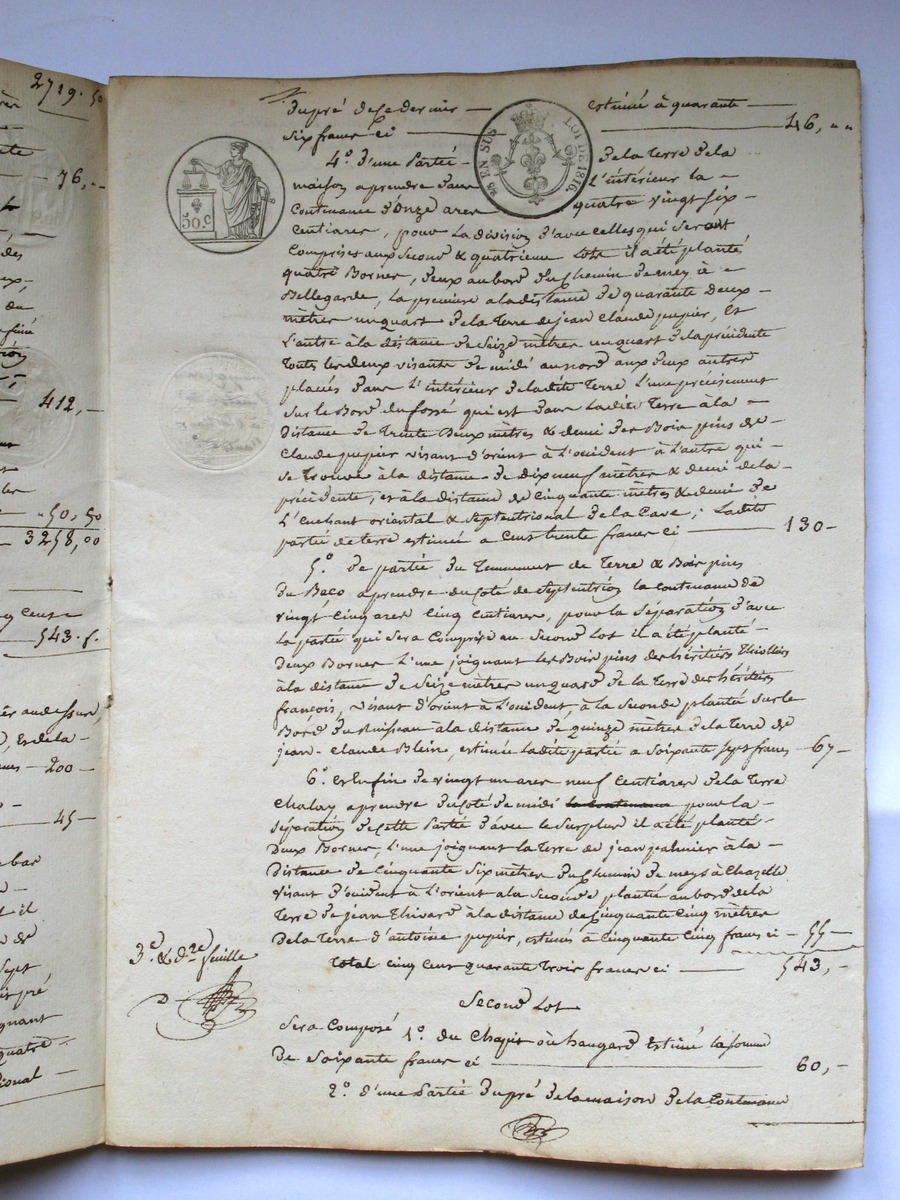 2719. 50
76, --
412, -
50, 50
3258,00
543. f.
200 -
45 -
du pré de ce dernier — estimé à quarante —
six francs ci — 46, " "
4°. d'une Partie de la Terre de la
maison a prendre dans L'intérieur la =
Continance d'onze ares quatre vingt six -
Centiares, pour La division d'avec celles qui seront
Comprises aux Second & quatrieme Lots il a été planté
quatre Bornes, deux au bord du Chemin de meys à =
Bellegarde, La premiere a la distance de quarante deux -
mètres un quart de la Terre de jean Claude pupier, Et
L'autre à la distance de Seize mètres un quart de la précédente
Toutes les deux visantes de midi au nord aux deux autres
placées dans L'intérieur de ladite Terre L'une précisement
Sur le Bord du fossé qui est dans Ladite Terre à la =
distance de Trente Deux mètres & demi des Bois pins de
Claude pupier visant d'orient à L'occident à L'autre qui -
se Trouve à la distance de dix neuf mètres & demi de la -
précédente, et à la distance de Cinquante mètres & demi de
L' oriental & septentrional de la Cave; Ladite
partie de terre estimée a Cent trente francs ci — 130 -
5° de partie du Tennement de Terre & Bois pins
du Beco a prendre du Coté de Septentrion la contenance de
vingt Cinq ares Cinq Centiares, pour la Séparation d'avec
La partie qui sera Comprise au Second Lot il a été planté -
Deux Bornes L'une joignant les Bois pins des héritiers Thiollier
à la distance de Seize mètres un quard de la Terre des héritiers
françois, visant d'orient à L'occident, à la Seconde plantée sur le
Bord du Ruisseau à la distance de quinze mètres de la terre de
jean-Claude Blein, estimée Ladite partie a Soixante sept francs - 67 -
6°. et Enfin de vingt un ares neuf Centiares de la Terre
Chalay a prendre du Coté de midi la Contenance pour la -
séparation de cette Partie d'avec le Surplus il a été planté -
Deux Bornes, L'une joignant la Terre de jean palmier à la -
Distance de Cinquante Six mètres du Chemin de meys à Chazelle
visant d'occident à L'orient a la Seconde plantée au bord de la
Terre de jean Thivard à la distance de Cinquante Cinq mètres
De la Terre d'antoine pupier, estimés à Cinquante Cinq francs ci - 55 -
Total Cinq Cent quarante Trois francs ci — 543, -
Second Lot
Sera Composé 1°. du Chapit ou hangard Estimé la somme
De Soixante francs ci — 60, -
2°. d'une Partie du pré de la maison de la Contenance
3.e & d.re feuille
50.C
25 EN SUS
LOI DE 1816.